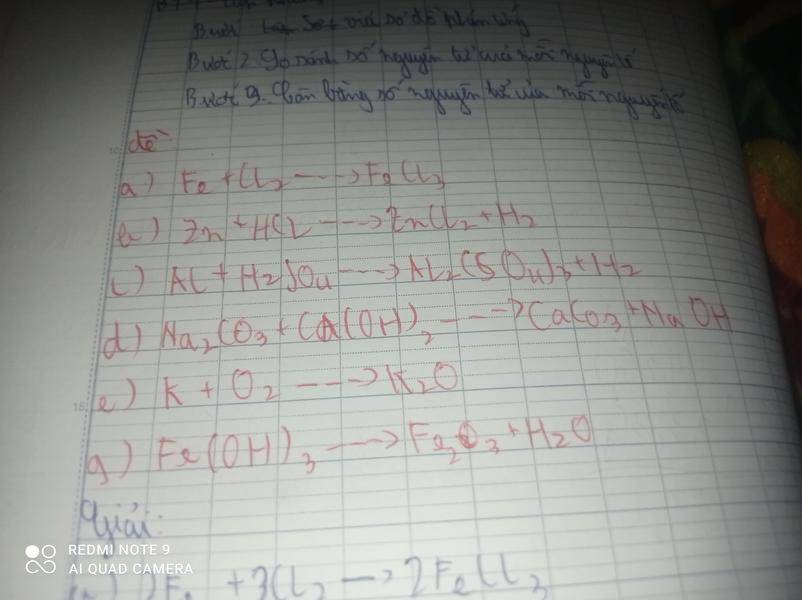 Bước viết sơ đồ phản ứng
Bước 2. So sánh số nguyên tử của mỗi nguyên tố
Bước 3. Cân bằng số nguyên tử của mỗi nguyên tố
đề
a) Fe + Cl2 ---> FeCl3
b) Zn + HCL ---> ZnCl2 + H2
c) Al + H2SO4 ---> AL2(SO4)3 + H2
d) Na2CO3 + Ca(OH)2 ---> CaCO3 + NaOH
e) K + O2 ---> K2O
g) Fe(OH)3 ---> Fe2O3 + H2O
Giải:
a) 2Fe + 3Cl2 -> 2FeCl3
REDMI NOTE 9
AI QUAD CAMERA